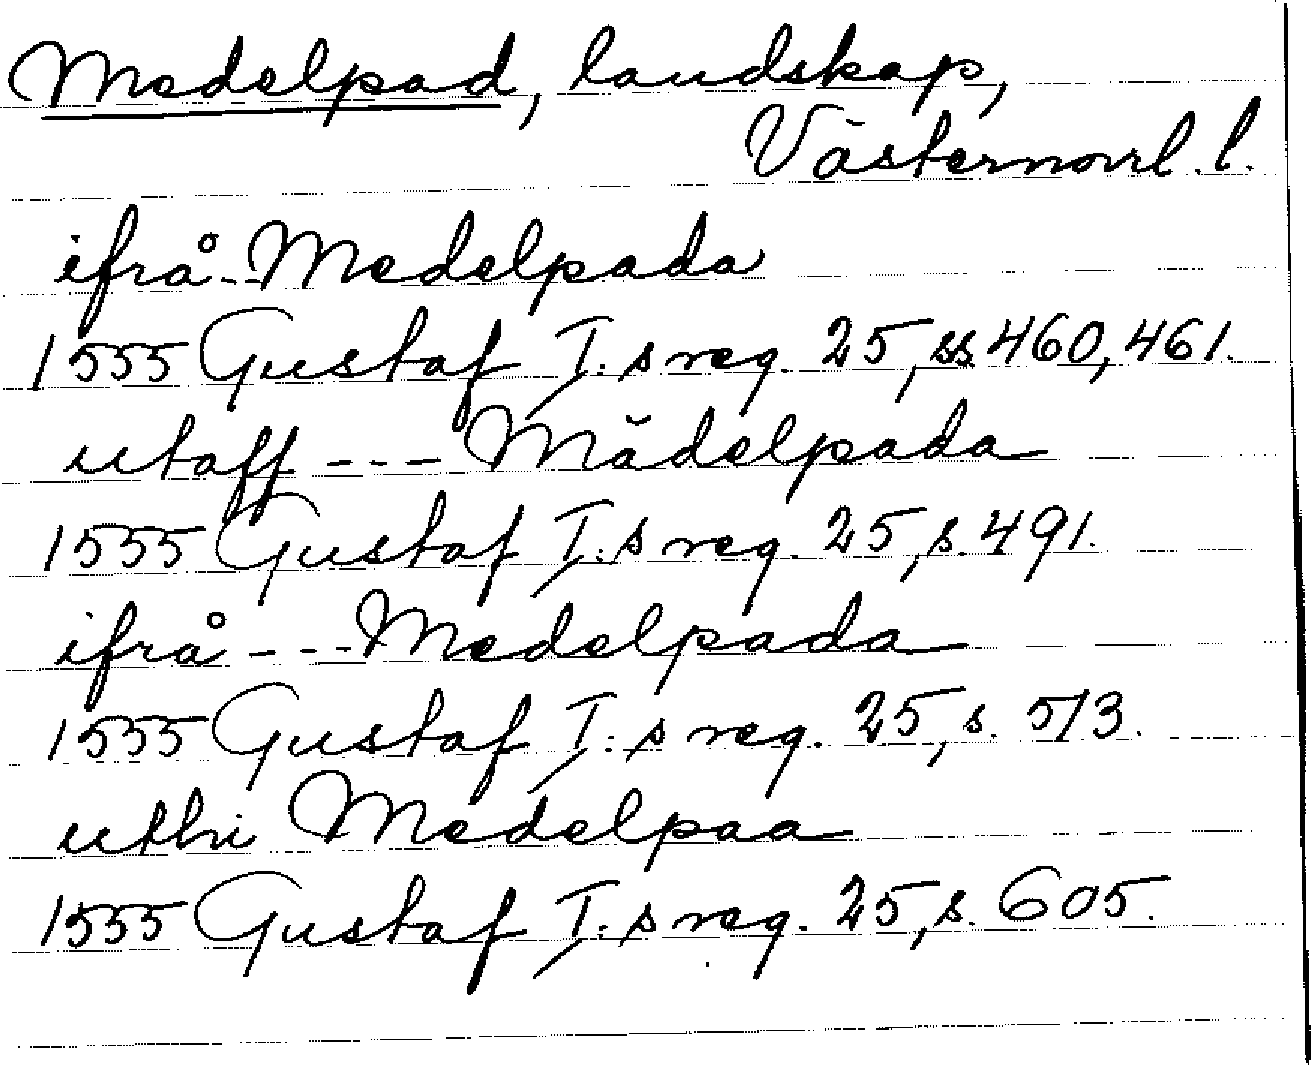 Medelpad, landskap,
Västernorrl. l.
ifrå - - Medelpada
1555 Gustaf I:s reg. 25, ss 460, 461.
utaff - - - Mädelpada
1555 Gustaf I:s reg. 25, s. 491.
ifrå - - - Medelpada
1555 Gustaf I:s reg. 25, s. 513.
uthi Medelpaa
1555 Gustaf I:s reg. 25, s. 605.